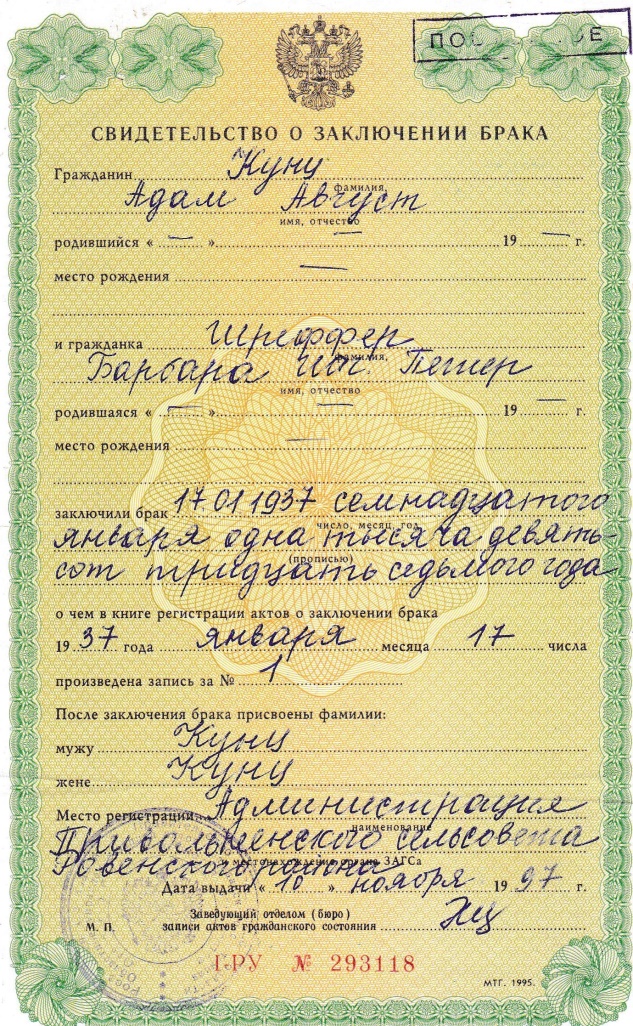 СВИДЕТЕЛЬСТВО О ЗАКЛЮЧЕНИИ БРАКА
Гражданин Кунц
фамилия,
Адам Август
имя, отчество
родившийся « — » — 19 — г.
место рождения —
и гражданка Шреффер
фамилия,
Барбара Ив. Петер
имя, отчество
родившаяся « — » — 19 — г.
место рождения —
заключили брак 17.01 1937 семнадцатого
число, месяц, год
января одна тысяча девять-
(прописью)
сот тридцать седьмого года
о чем в книге регистрации актов о заключении брака
19 37 года января месяца 17 числа
произведена запись за № 1
После заключения брака присвоены фамилии:
мужу Кунц
жене Кунц
Место регистрации Администрация
наименование
Привольненского сельсовета
и местонахождение органа ЗАГСа
Ровенского района
Дата выдачи « 16 » ноября 19 97 г.
Заведующий отделом (бюро)
М. П. записи актов гражданского состояния
ГРУ № 293118
МТГ. 1995.